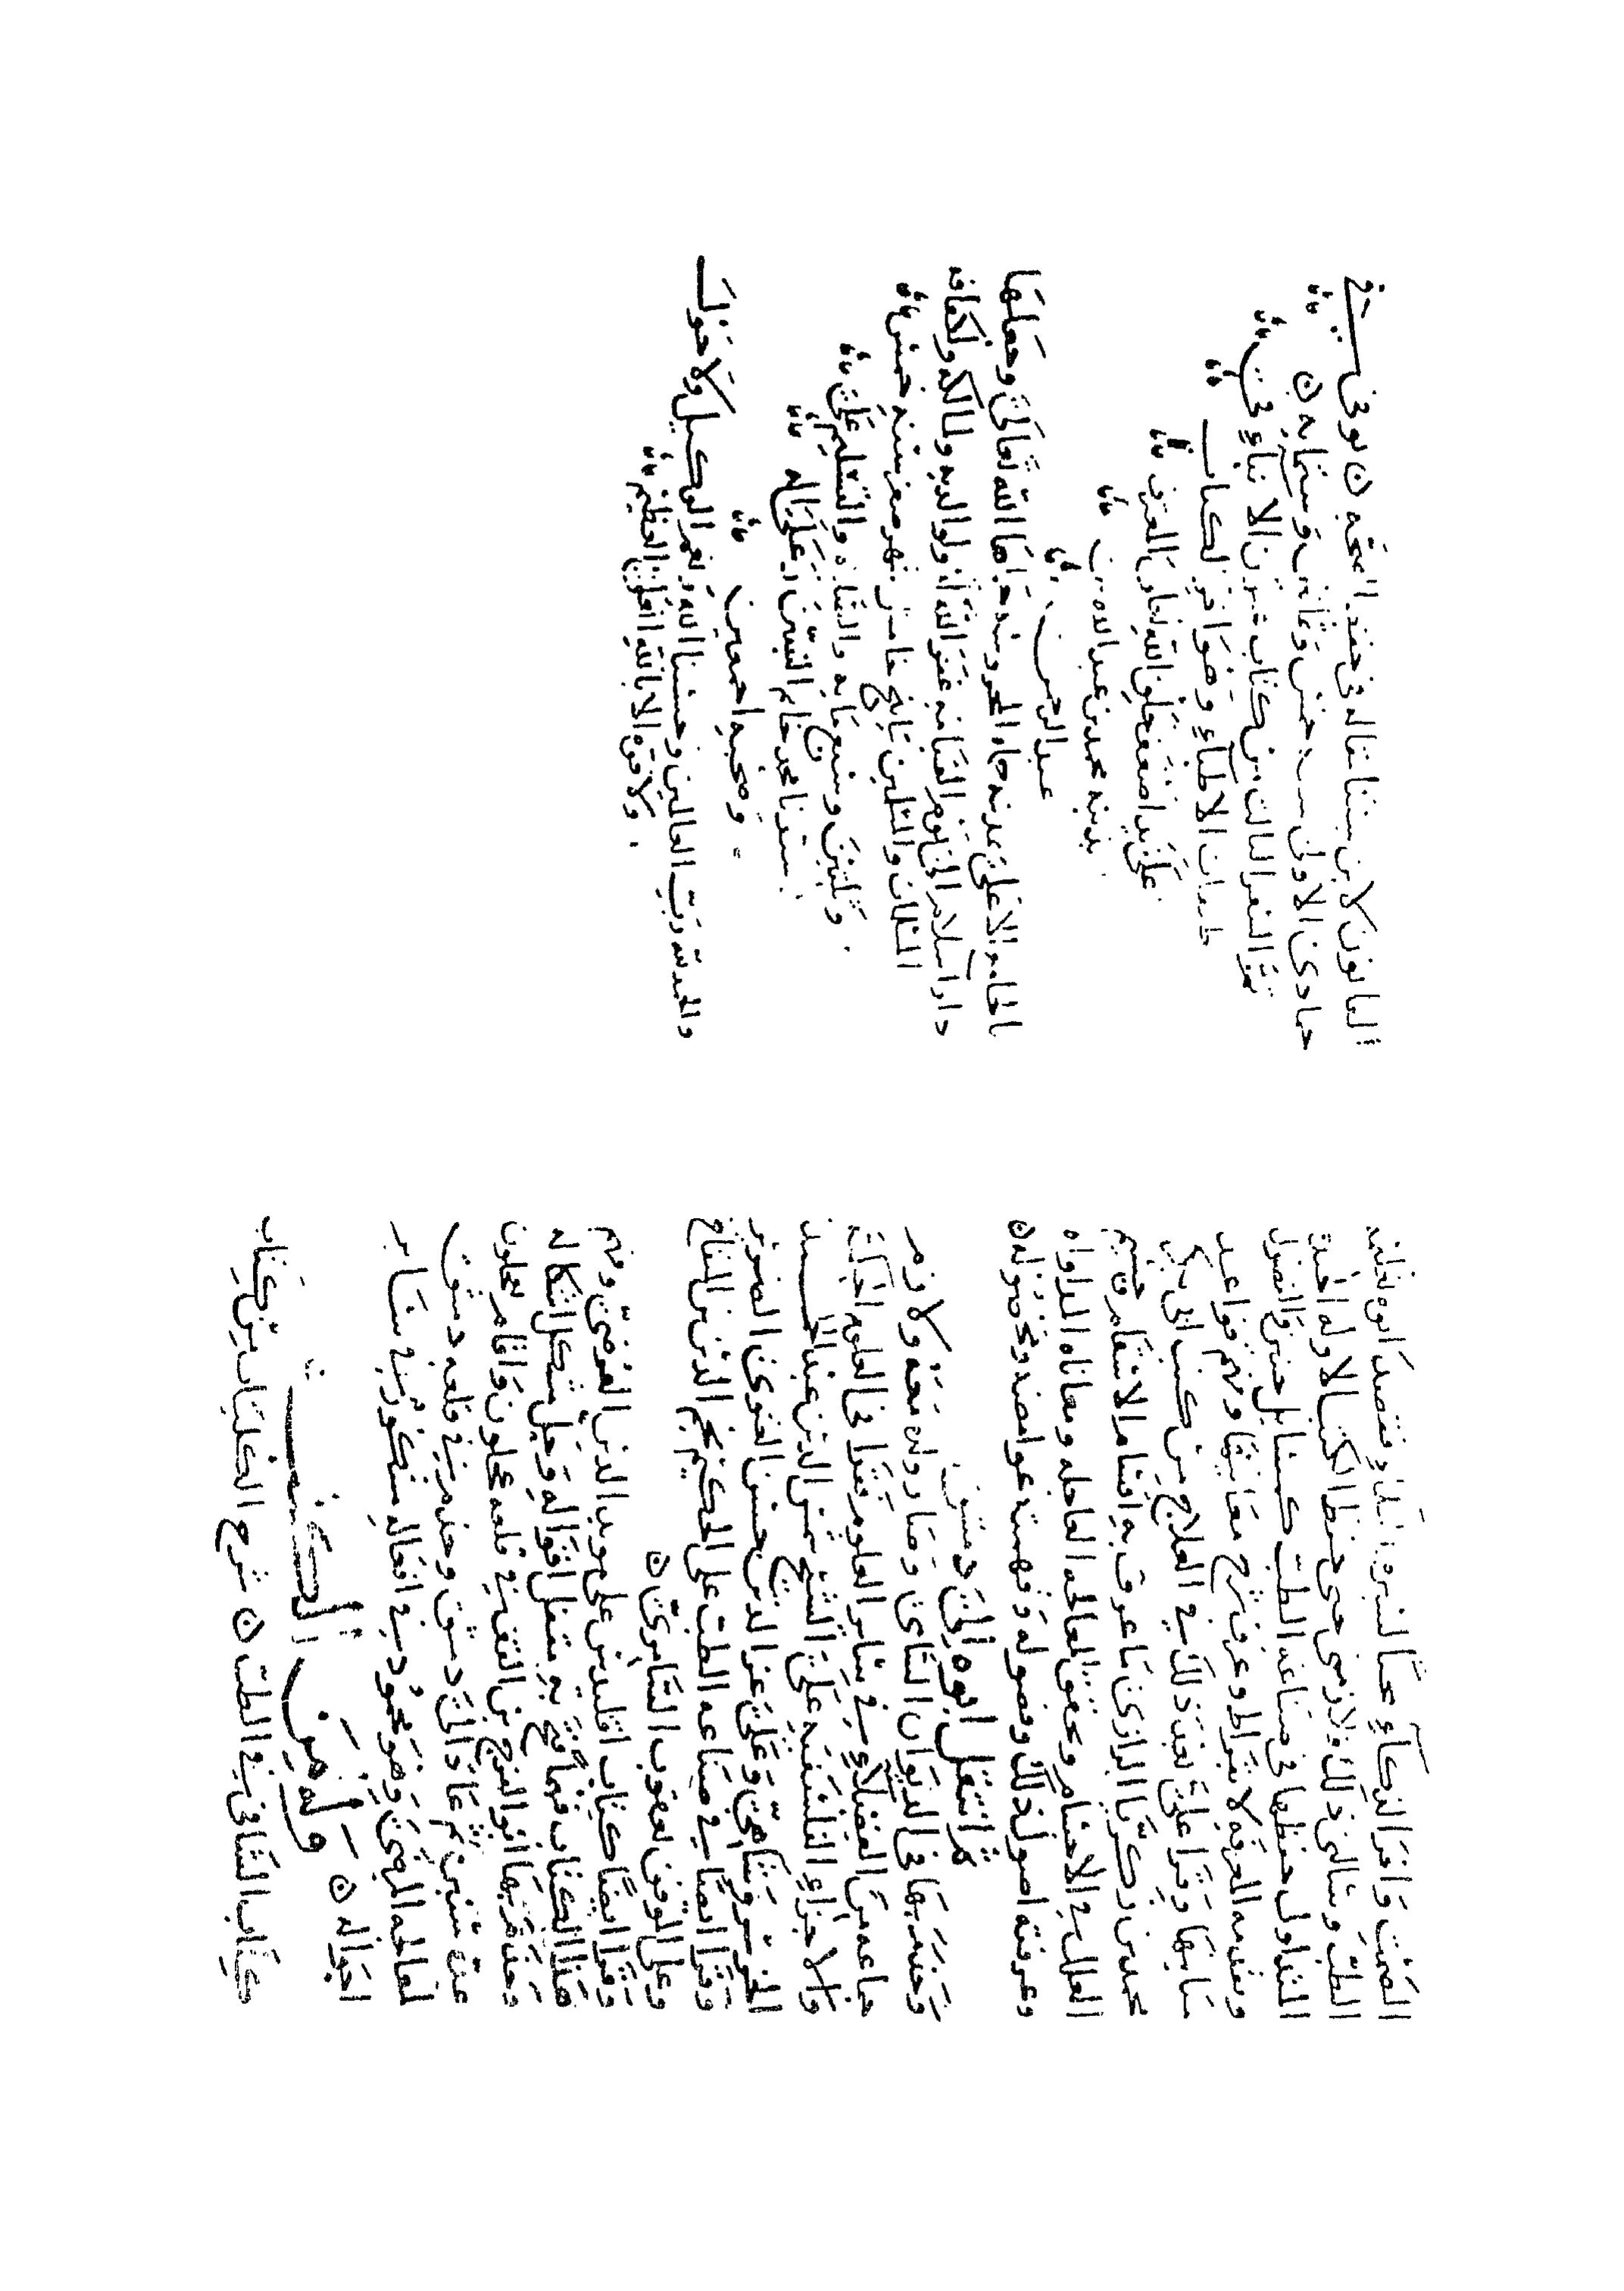 الصمت وافر الذكاء محبًا لسيره العلماء فقصد ابوه تعليمه
الطب وسالني ذلك فلازمني حتى حفظ الكتب الاوله
المتداول حفظها في صناعه الطب كمسايل حنين والفصول
وتقدمه المعرفه لابقراط وعرف شرح معانيها وفهم قواعد
مبانيها وقرا علي بعد ذلك في العلاج من كتب ابي بكر
محمد بن زكريا الرازي ما عرف به اقسام الاسقام وجسيم
العلل في الاجسام وتحقق المعالجه ومعاناه المداواه
وعرفته اصول ذلك وفصوله وفهمته غوامضه ومحصوله
ثم انتقل ابوه الى دمشق
وخدم بها في الديوان السامي وصار ولده معه ولازم
جماعه من الفضلاء في ساير العلوم فقرا في العلوم الحكميه
والاجزاء الفلسفيه على الشيخ شمس الدين عبد الحميد
الخسروشاهي وعلى عز الدين حسن الغنوي الضرير
وقرا ايضا في صناعه الطب على الحكيم نجم الدين بن المنفاخ
وعلى الموفق يعقوب السامري
وقرا ايضا كتاب اقليدس على مويد الدين العرضي وفهم
هذا الكتاب فهما فتح به مقفل اقواله وحل مشكل اشكاله
وخدم بها ابو الفرج بن القف في قلعه عجلون واقام بعجلون
عده سنين ثم عاد الى دمشق وخدم في قلعه دمشق
لمعالجه المرضى وهو محمود في افعاله مشكور في ساير
احواله
وله من الكتب
كتاب الشافي في الطب شرح الكليات من كتاب
القانون لابن سينا مقاله في حفظ الصحه توفي في
جمادى الاولى سنه خمس وثمانين وستمايه
تم السفر الثالث من كتاب عيون الانباء في
طبقات الاطباء وهو اخر الكتاب
على يد اضعف خلق الله تعالى المعترف
بذنبه محمد بن عبد الله بن
عبد الرحمن
الجامع الاعلى بمدينه حماه المحروسه حماها الله تعالى وجعلها
دار اسلام الى يوم القيامه غفر الله له ولوالديه ولمالكه ولكافه
والمسلمين تاريخ خامس شهر صفر سنه خمس
وثلثين وسبع مايه والصلاه والتسليم على
سيدنا محمد خاتم النبيين وعلى اله
وصحبه اجمعين
والحمد لله رب العالمين وحسبنا الله ونعم الوكيل ولا حول
ولا قوه الا بالله العلي العظيم